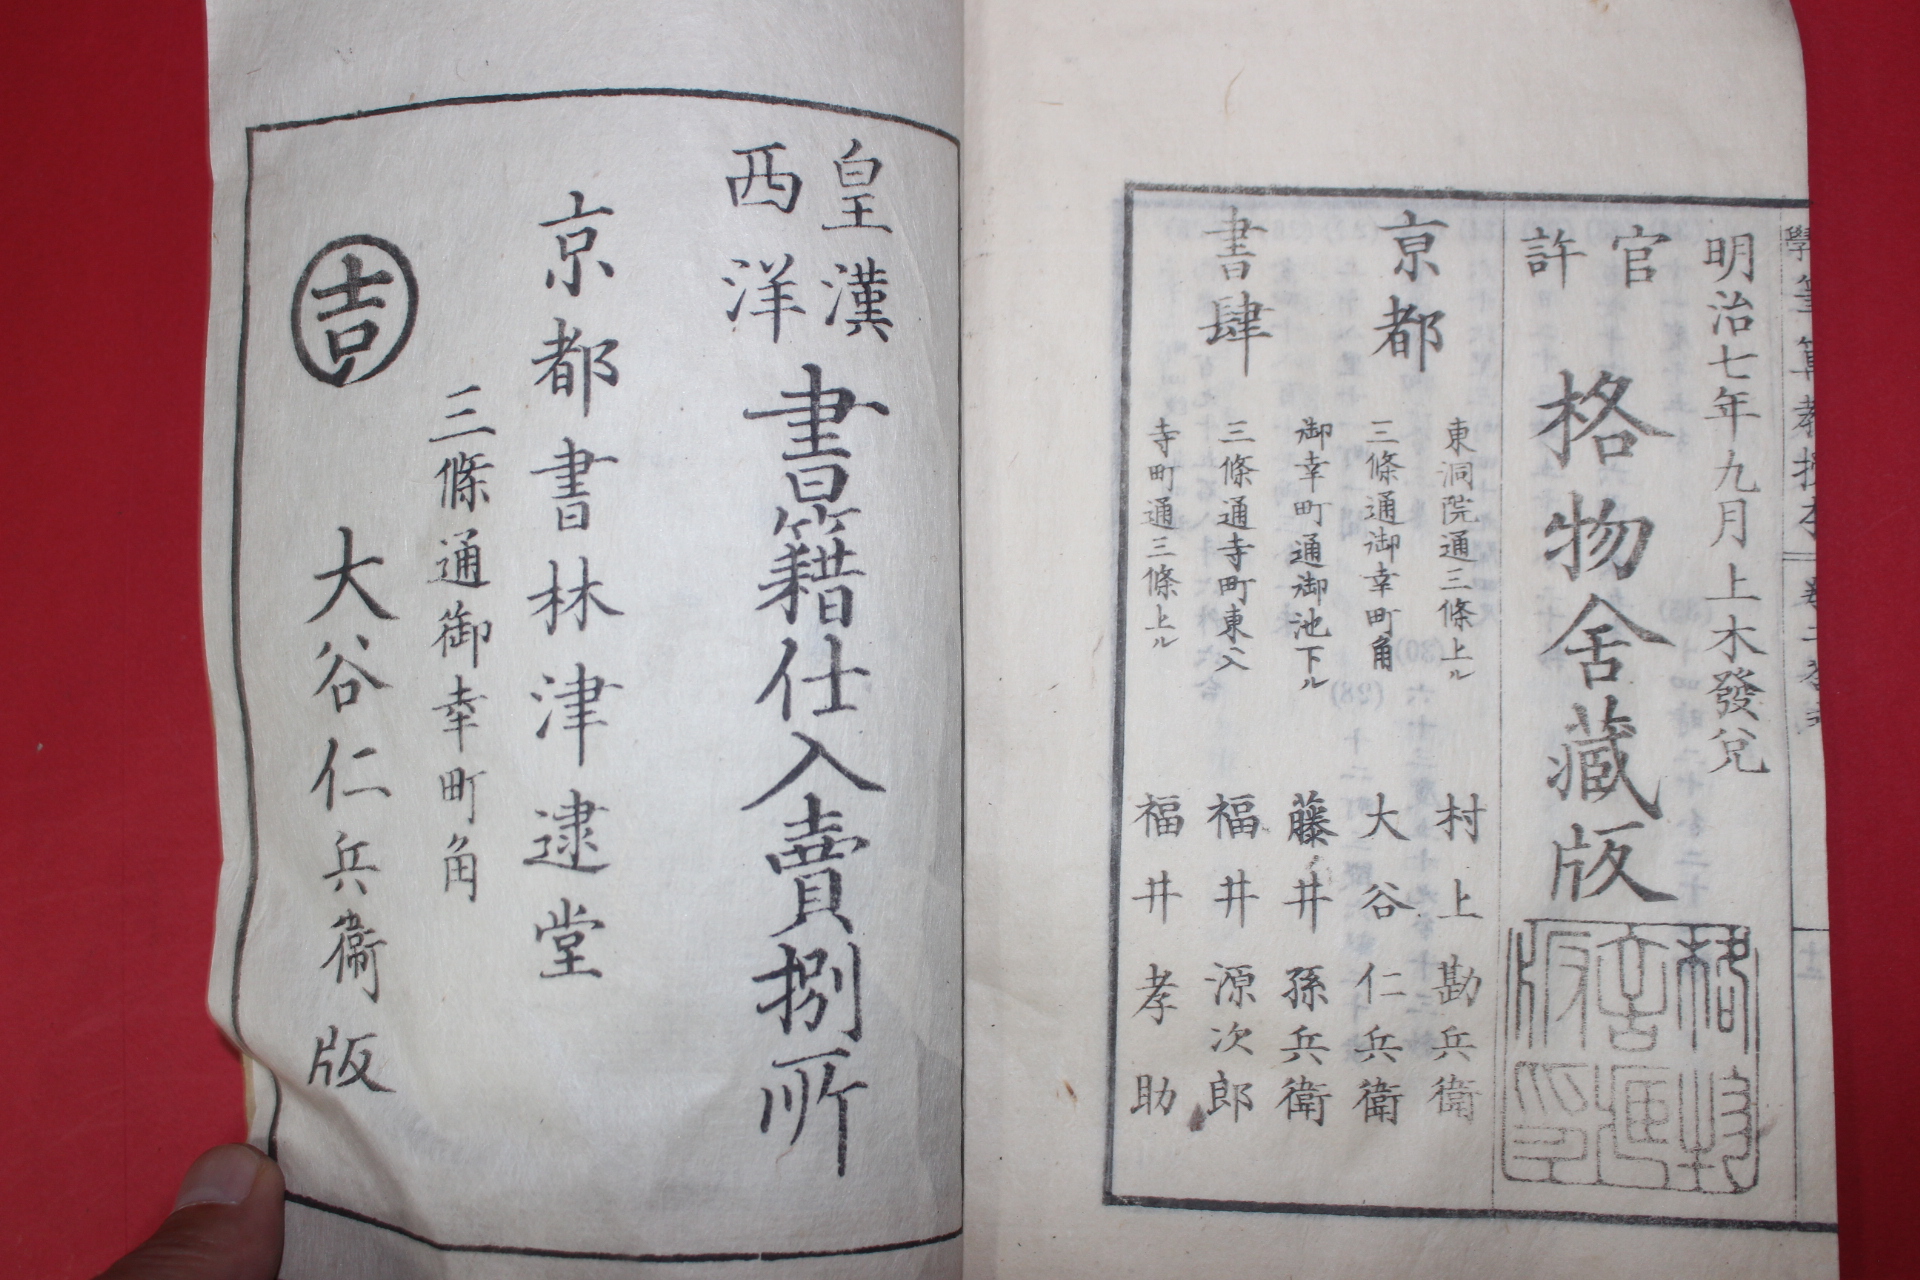 明治七年九月上木發兌
官許
格物舍藏版
京都
書肆
東洞院通三條上ル 村上勘兵衛
三條通御幸町角 大谷仁兵衛
御幸町通御池下ル 藤井孫兵衛
三條通寺町東入 福井源次郎
寺町通三條上ル 福井孝助
皇漢
西洋
書籍仕入賣捌所
京都書林津逮堂
三條通御幸町角
吉 大谷仁兵衛版